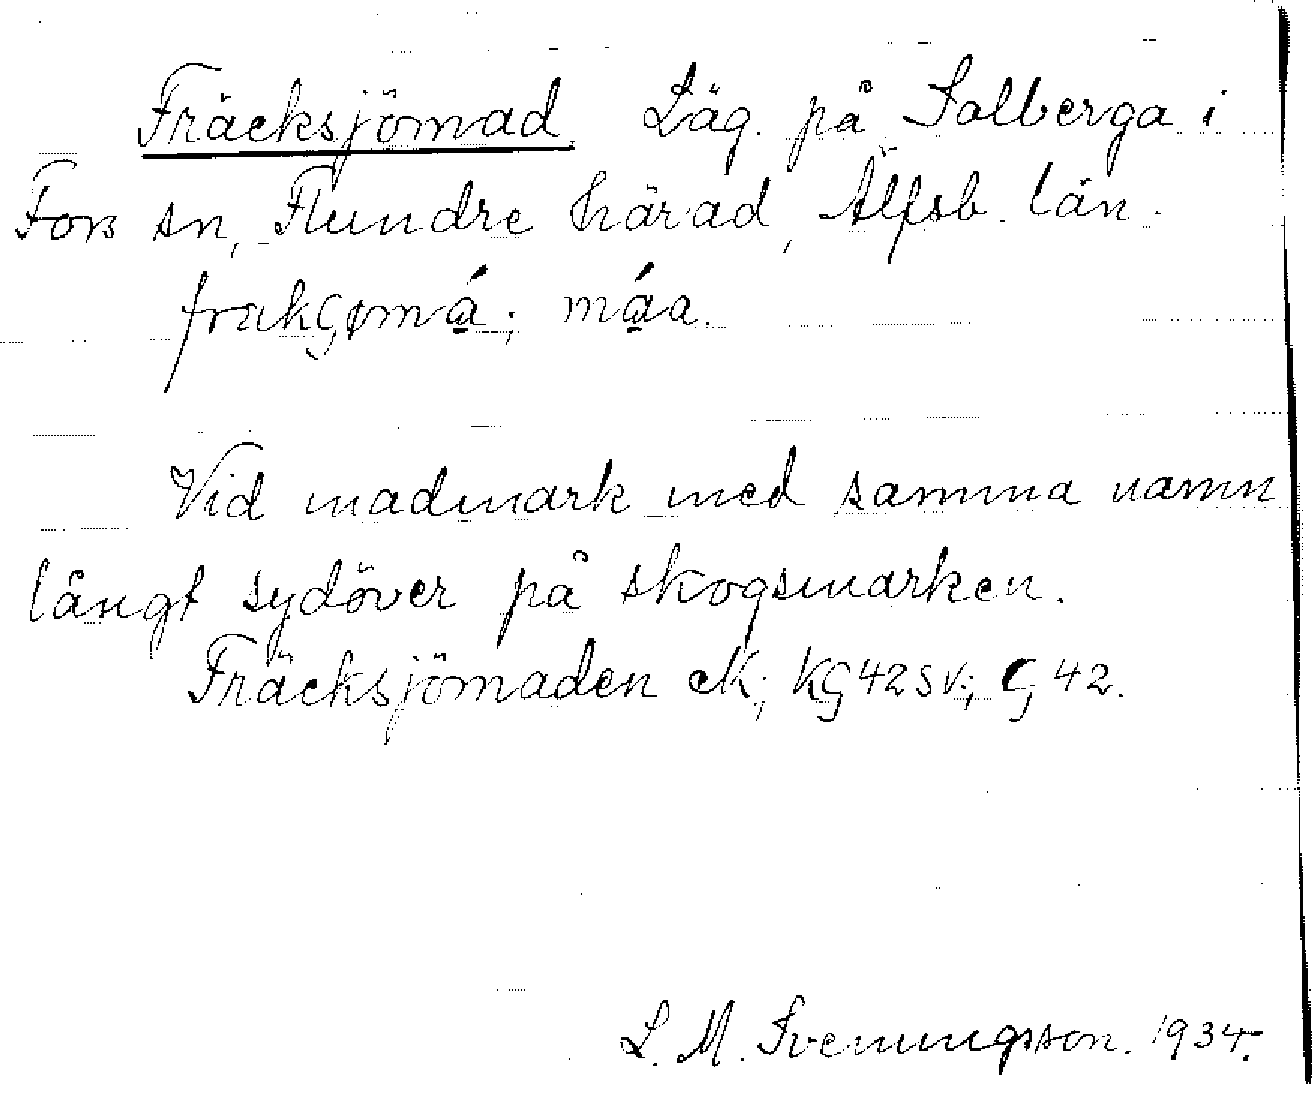 Fräcksjömad Läg. på Salberga i
Fors sn, Flundre härad, Älfsb. län.
frakςømá; máa.
Vid madmark med samma namn
långt sydöver på skogsmarken.
Fräcksjömaden eK; KG42sv; G42.
L. M. Svenungsson. 1934.